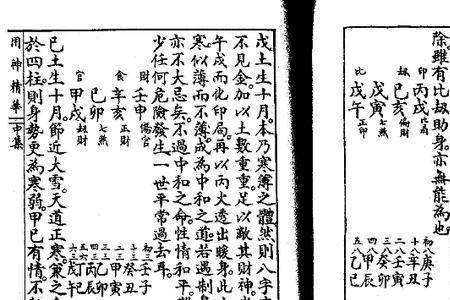 除。雖有比劫助身。亦無能為也。
印 丙戌 比傷
劫 己亥 偏財
戊寅 七煞
比 戊午 正印
初八庚子
十八辛丑
二八壬寅
三八癸卯
四八甲辰
五八乙巳
戊土生十月。本乃寒薄之體。然則八字
不見金。加以土數重重。足以敵其財神
午戌而化印局。再以丙火透出暖身。此
寒似薄而不薄。成為中和之道。若遇制身
亦不大忌矣。不過中和之命。性情和平。
少任何危險發生。一世平常過去耳。
財 壬申 傷官
食 辛亥 正財
己卯 七煞
官 甲戌 劫財
初三壬子
十三癸丑
二三甲寅
三三乙卯
四三丙辰
五三丁巳
六三戊午
己土生十月。節近大雪。天道正寒。策之
於四柱。則身勢更為寒弱。甲己有情不
用神精華 中集